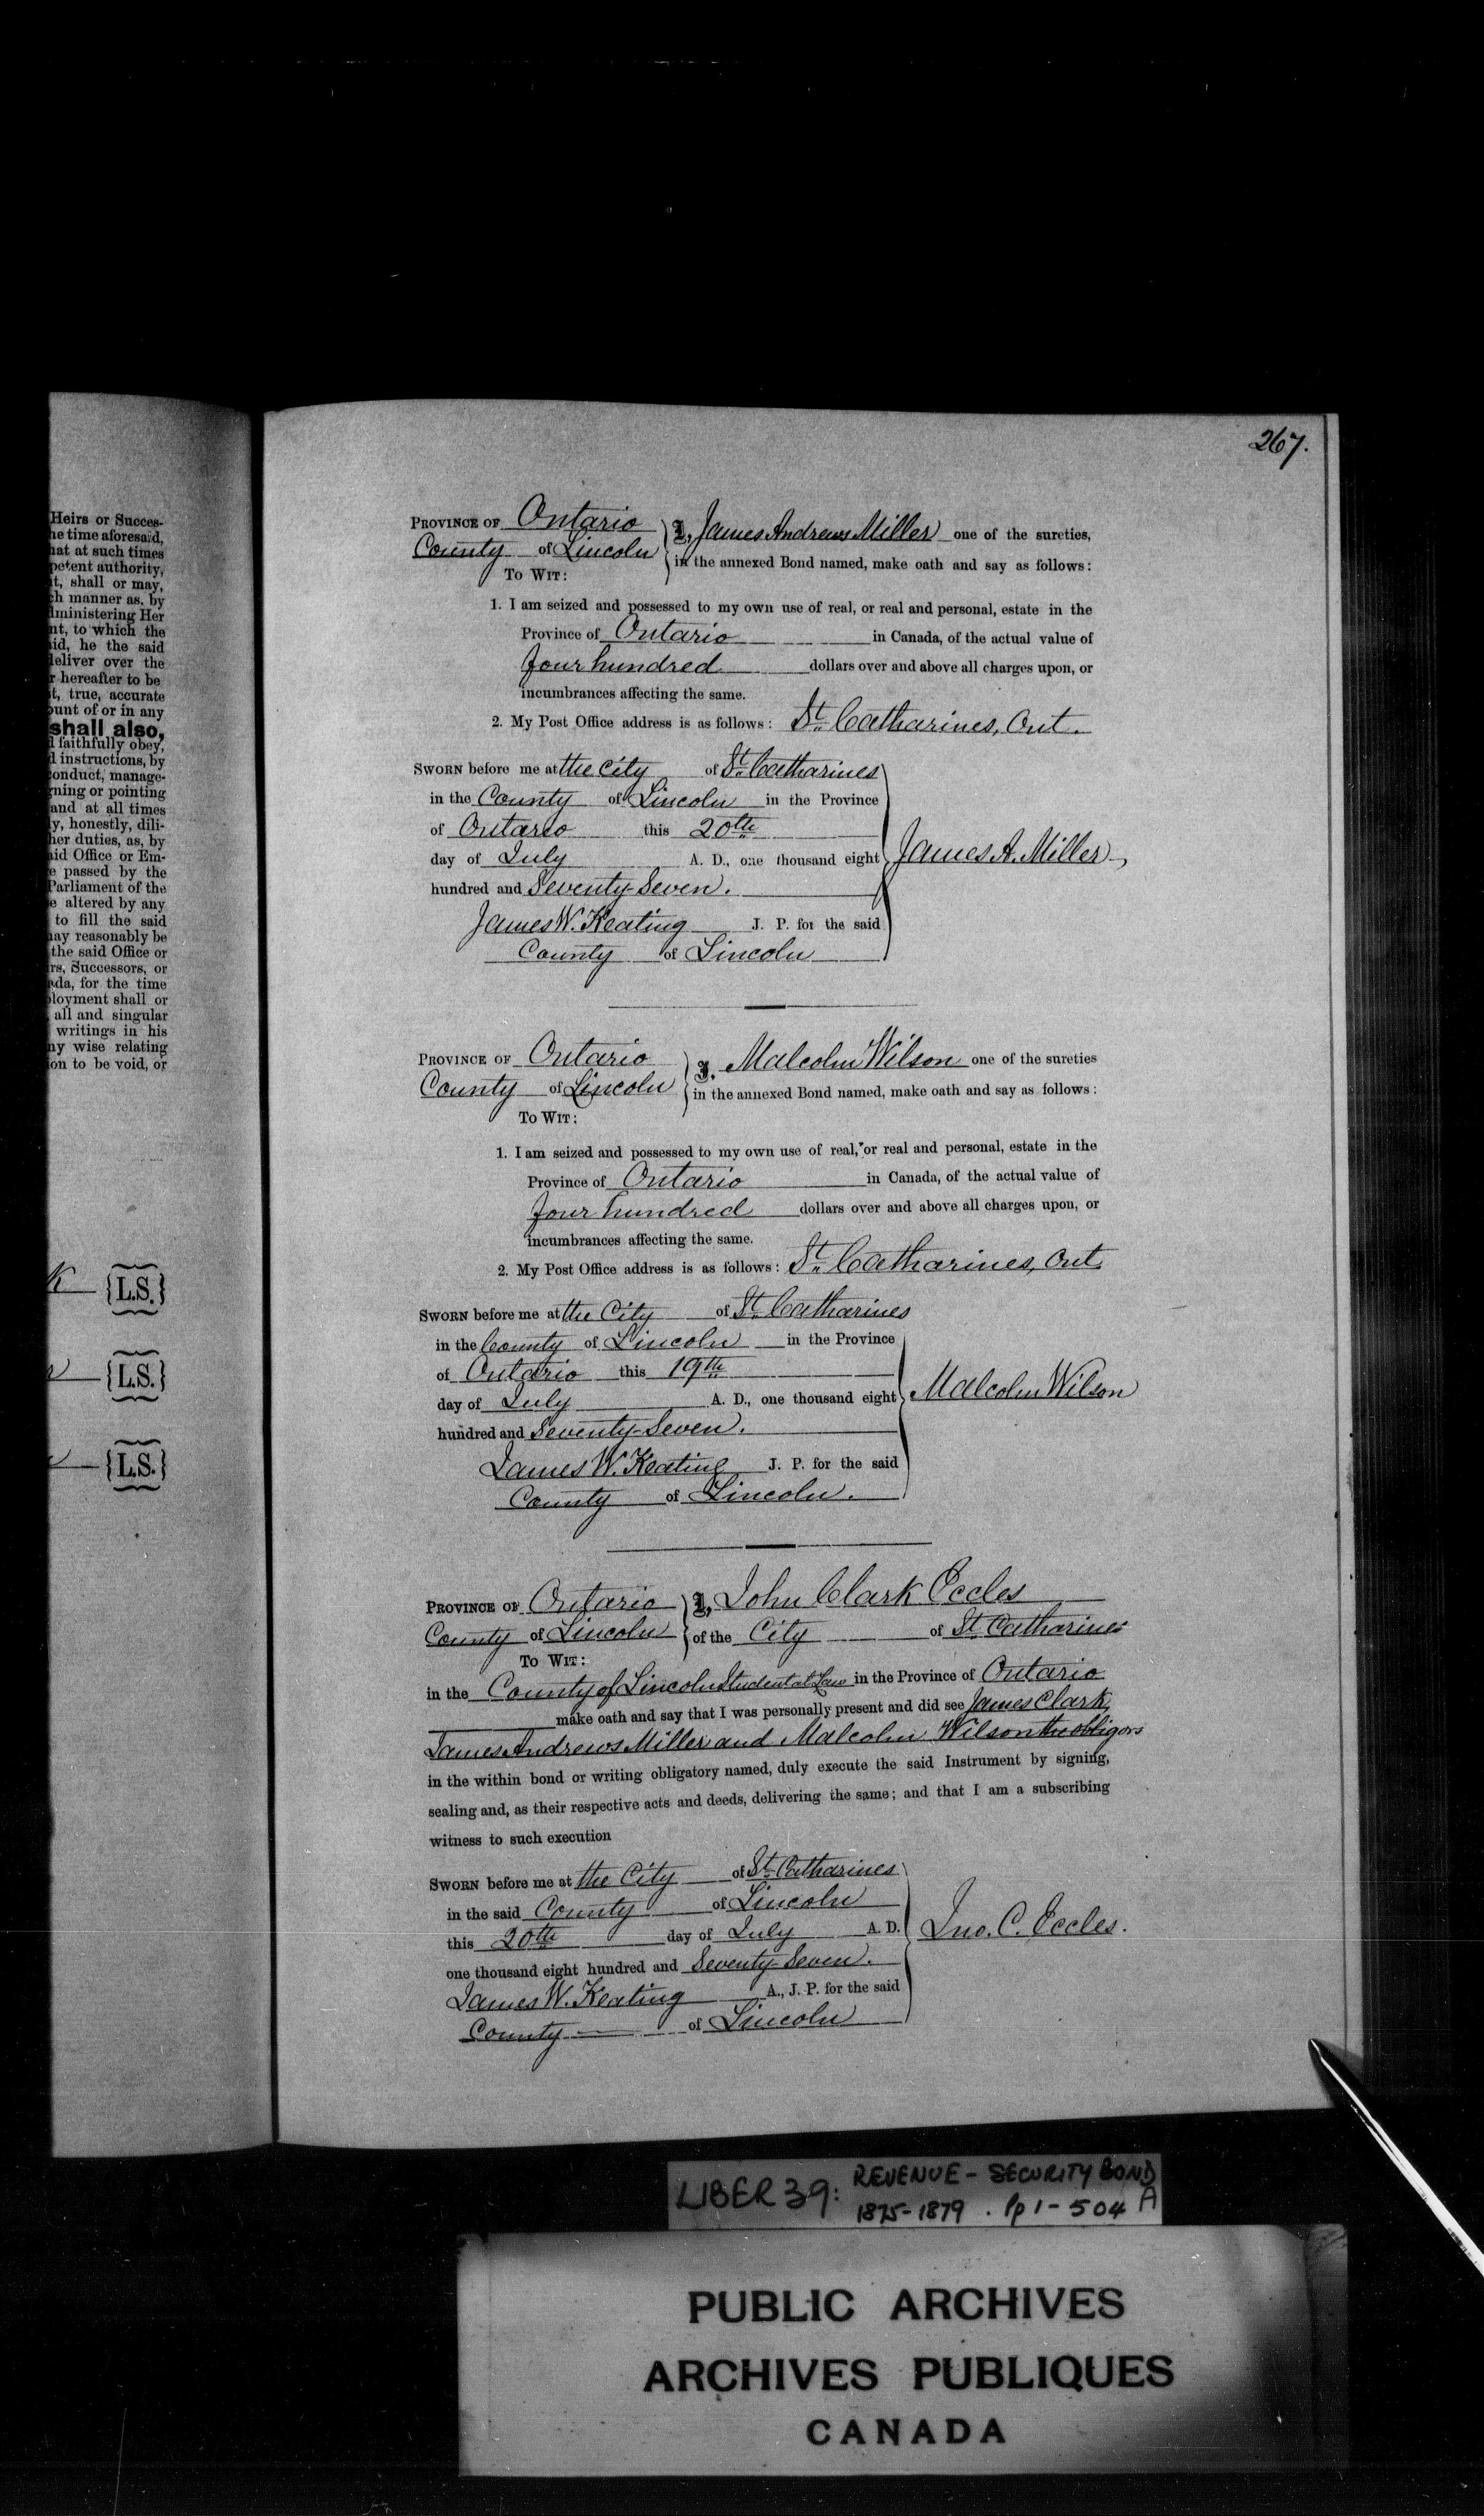 Heirs or Succes-
he time aforesaid,
hat at such times
petent authority,
t, shall or may,
ch manner as, by
dministering Her
nt, to which the
aid, he the said
deliver over the
r hereafter to be
t, true, accurate
ount of or in any
shall also,
d faithfully obey,
d instructions, by
conduct, manage-
ning or pointing
and at all times
y, honestly, dili-
her duties, as, by
aid Office or Em-
e passed by the
Parliament of the
e altered by any
to fill the said
nay reasonably be
the said Office or
rs, Successors, or
ada, for the time
ployment shall or
all and singular
writings in his
ny wise relating
ion to be void, or
{L.S.}
{L.S.}
{L.S.}
267.
PROVINCE OF Ontario
County of Lincoln
TO WIT:
I, James Andrews Miller one of the sureties,
in the annexed Bond named, make oath and say as follows:
1. I am seized and possessed to my own use of real, or real and personal, estate in the
Province of Ontario in Canada, of the actual value of
four hundred dollars over and above all charges upon, or
incumbrances affecting the same.
2. My Post Office address is as follows: St. Catharines, Ont.
SWORN before me at the City of St. Catharines
in the County of Lincoln in the Province
of Ontario this 20th
day of July A. D., one thousand eight
hundred and Seventy-Seven.
James W. Keating J. P. for the said
County of Lincoln
James A. Miller
PROVINCE OF Ontario
County of Lincoln
TO WIT:
I, Malcolm Wilson one of the sureties
in the annexed Bond named, make oath and say as follows:
1. I am seized and possessed to my own use of real, or real and personal, estate in the
Province of Ontario in Canada, of the actual value of
four hundred dollars over and above all charges upon, or
incumbrances affecting the same.
2. My Post Office address is as follows: St. Catharines, Ont.
SWORN before me at the City of St. Catharines
in the County of Lincoln in the Province
of Ontario this 19th
day of July A. D., one thousand eight
hundred and Seventy-Seven.
James W. Keating J. P. for the said
County of Lincoln.
Malcolm Wilson
PROVINCE OF Ontario
County of Lincoln
TO WIT:
I, John Clark Eccles
of the City of St. Catharines
in the County of Lincoln Student at Law in the Province of Ontario
make oath and say that I was personally present and did see James Clark,
James Andrews Miller and Malcolm Wilson the obligors
in the within bond or writing obligatory named, duly execute the said Instrument by signing,
sealing and, as their respective acts and deeds, delivering the same; and that I am a subscribing
witness to such execution
SWORN before me at the City of St. Catharines
in the said County of Lincoln
this 20th day of July A. D.
one thousand eight hundred and Seventy-Seven.
James W. Keating A., J. P. for the said
County of Lincoln
Jno. C. Eccles.
LIBER 39: REVENUE - SECURITY BOND
1875-1879 . Pp 1 - 504 A
PUBLIC ARCHIVES
ARCHIVES PUBLIQUES
CANADA